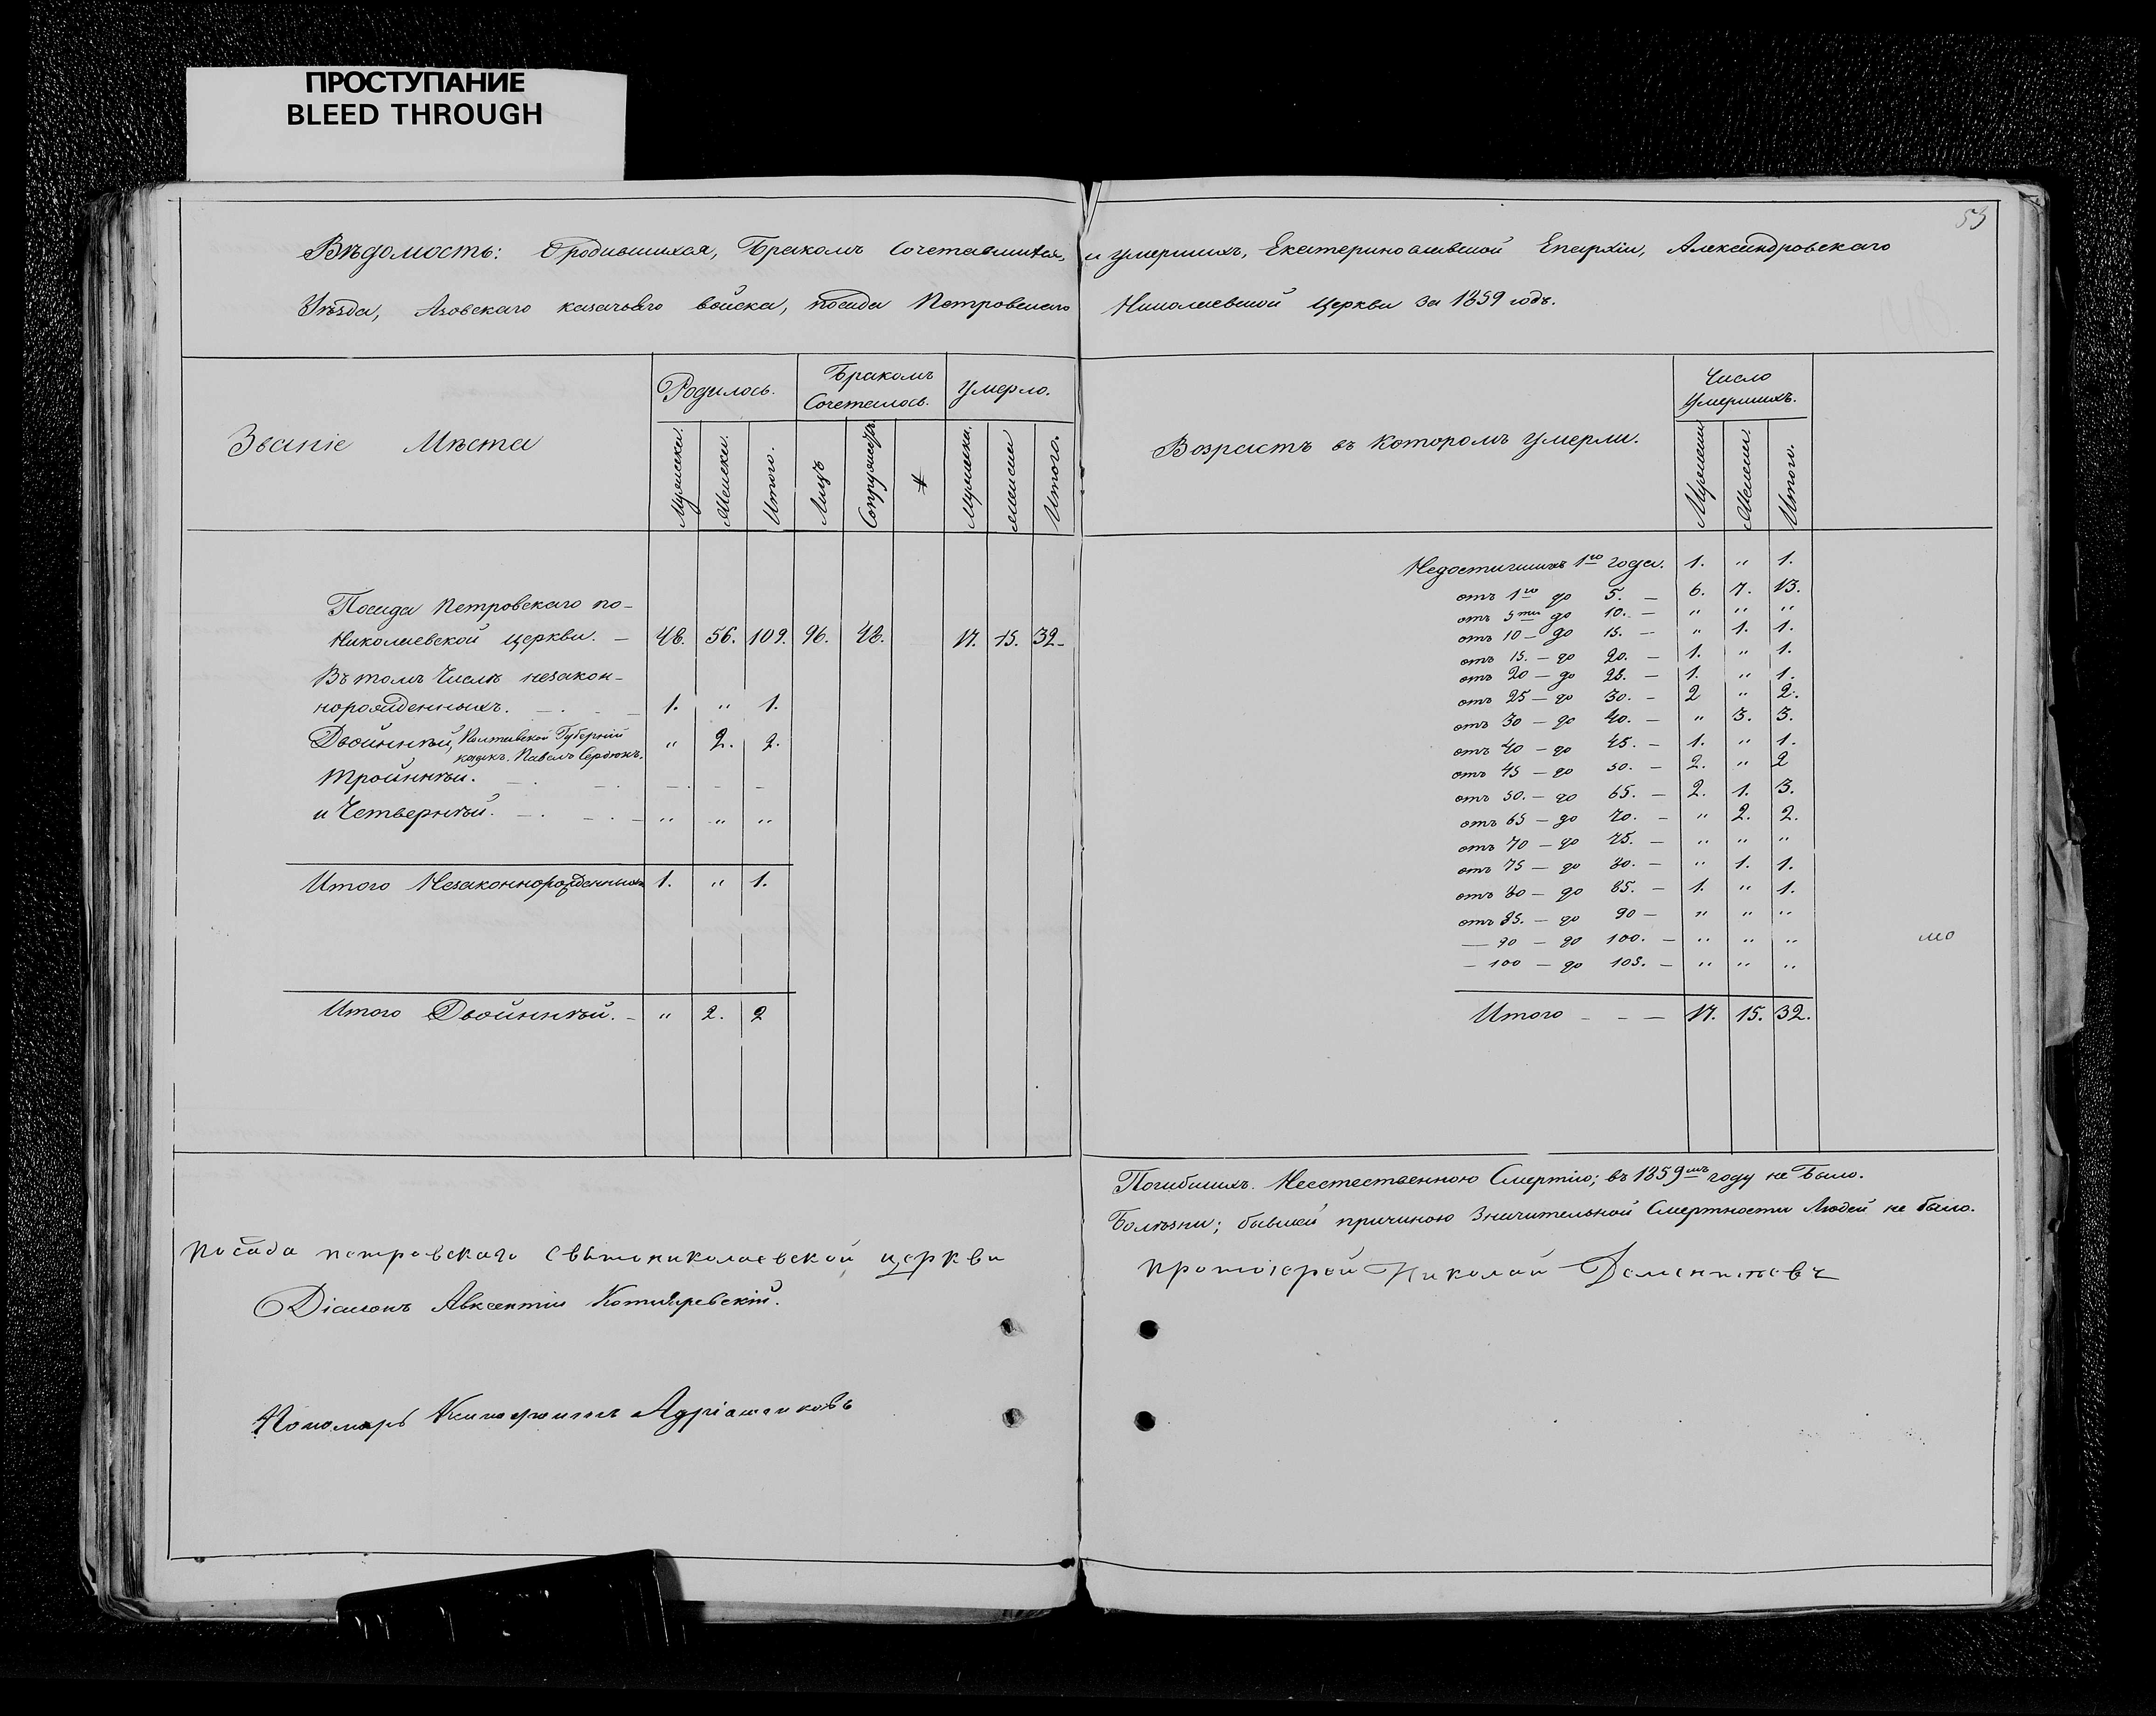 ПРОСТУПАНИЕ
BLEED THROUGH
53
Вѣдомость: О родившихся, Бракомъ Сочетавшихся, и умершихъ, Екатеринославской Епархіи, Александровскаго
Уѣзда, Азовскаго казачьяго войска, посада Петровскаго Николаевской Церкви за 1859 годъ.
Званіе Мѣста
Родилось.
Бракомъ
Сочеталось.
Умерло.
Мужеска. Женска. Итого. Лицъ Супружествъ Мужеска. Женска Итого.
Посада Петровскаго по-
Николаевской церкви. — 48. 56. 109. 96. 48. 17. 15. 32-
Въ томъ Числѣ незакон-
норожденныхъ. 1. " 1.
Двойнѣй, Полтавской Губерніи " 2. 2.
казакъ. Павелъ Сердюкъ.
Тройнѣй.
и Четвернѣй. " " "
Итого Незаконнорожденныхъ 1. " 1.
Итого Двойнѣй. - " 2. 2
посада петровскаго святониколаевской церкви
Діаконъ Авксентій Котляревскій.
Пономарь
Возрастъ въ которомъ умерли.
Число
Умершихъ.
Мужеска Женска Итого.
Недостигшихъ 1го года. 1. " 1.
отъ 1го до 5. — 6. 7. 13.
отъ 5ти до 10. — " " "
отъ 10 — до 15. — " 1. 1.
отъ 15. — до 20. — 1. " 1.
отъ 20 — до 25. — 1. " 1.
отъ 25 — до 30. — 2 " 2.
отъ 30 — до 40. — " 3. 3.
отъ 40 — до 45. — 1. " 1.
отъ 45 — до 50. — 2. " 2
отъ 50. — до 65. — 2. 1. 3.
отъ 65 — до 70. — " 2. 2.
отъ 70 — до 75. — " " "
отъ 75 — до 80. — " 1. 1.
отъ 80 — до 85. — 1. " 1.
отъ 85. — до 90 — " " "
— 90 — до 100. — " " "
— 100 — до 105. — " " "
Итого - - — 17. 15. 32.
Погибшихъ. Неестественною Смертію; въ 1859мъ году не Было.
Болѣзни; бывшей причиною Значительной Смертности Людей не было.
протоіерей Николай Дементьевъ